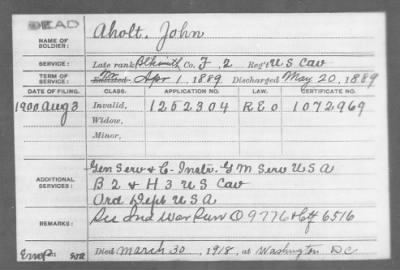 DEAD
NAME OF SOLDIER: Aholt, John
SERVICE: Late rank Blksmith Co. F, 2 Reg't U S Cav
TERM OF SERVICE: Enlisted Apr 1, 1889 Discharged May 20, 1889
DATE OF FILING. CLASS. APPLICATION NO. LAW. CERTIFICATE NO.
1900 Aug 3 Invalid, 1252304 REO 1072969
Widow,
Minor,
ADDITIONAL SERVICES: Gen Serv & C- Instr. G M Serv U S A
B 2 & H 3 U S Cav
Ord Dept U S A
REMARKS: See Ind War Surv O 9776 & Ctf 6516
Died March 30, 1918, at Washington D C